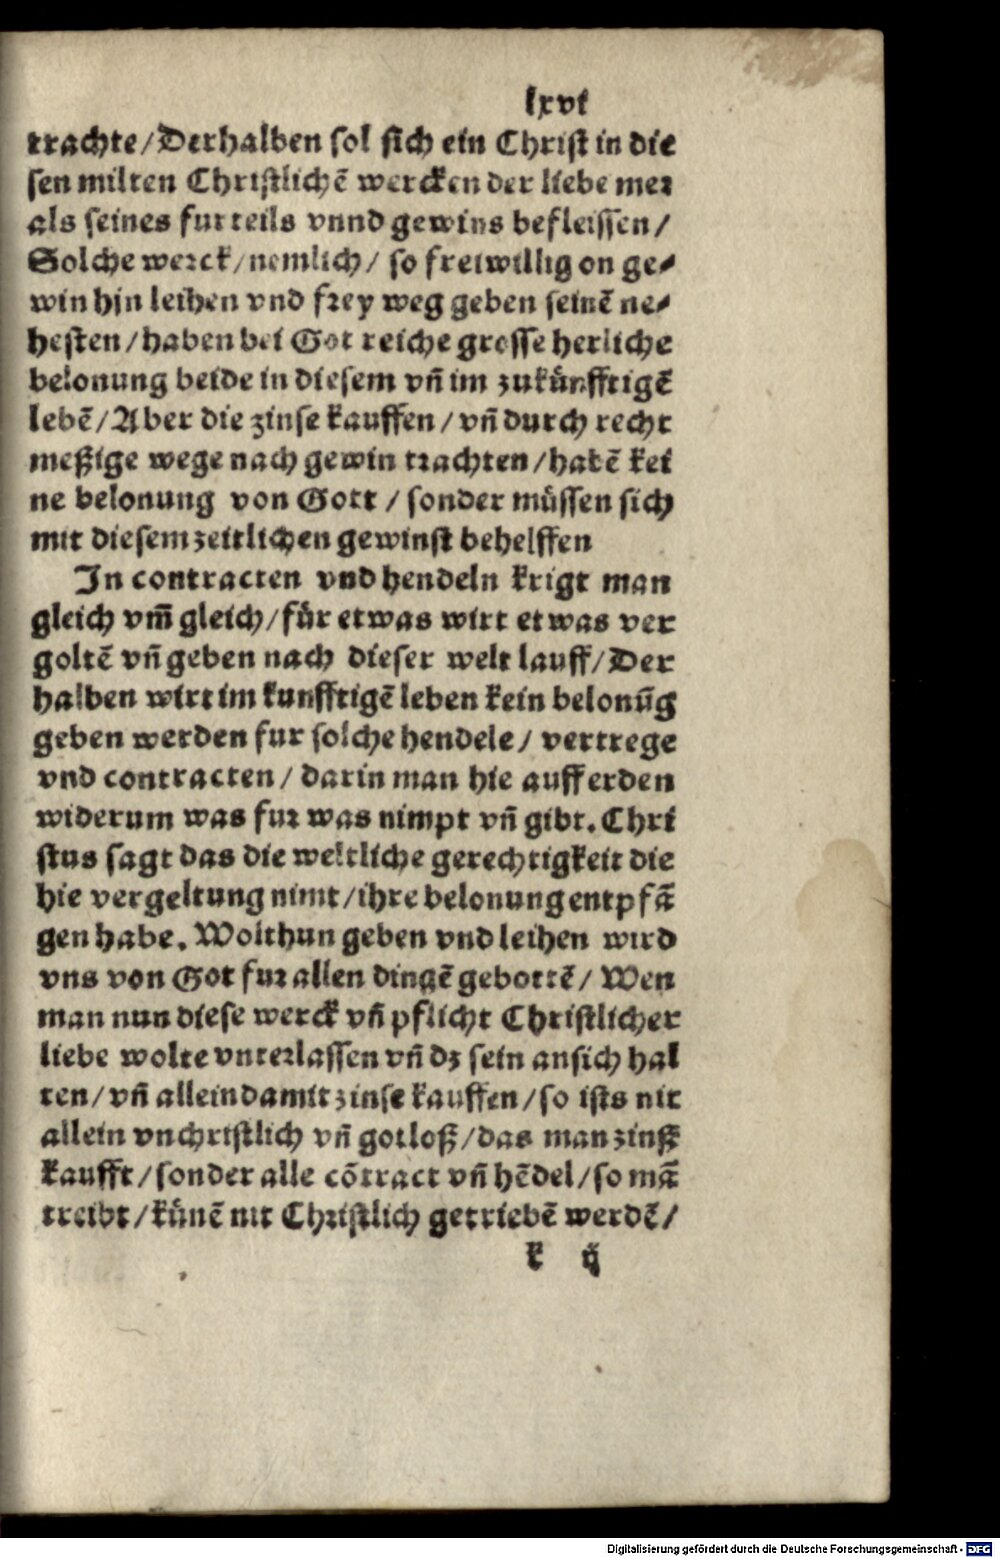 lxvi
trachte/Derhalben sol sich ein Christ in die
sen milten Christlichē wercken der liebe mer
als seines furteils vnnd gewins befleissen/
Solche werck/nemlich/ so freiwillig on ge-
win hin leihen vnd frey weg geben seinē ne-
hesten/haben bei Got reiche grosse herliche
belonung beide in diesem vñ im zukünfftigē
lebē/Aber die zinse kauffen/vñ durch recht
meßige wege nach gewin trachten/habē kei
ne belonung von Gott/sonder müssen sich
mit diesem zeitlichen gewinst behelffen
In contracten vnd hendeln krigt man
gleich vm̄ gleich/für etwas wirt etwas ver
goltē vñ geben nach dieser welt lauff/Der
halben wirt im kunfftigē leben kein belonūg
geben werden fur solche hendele/vertrege
vnd contracten/darin man hie auff erden
widerum was fur was nimpt vñ gibt. Chri
stus sagt das die weltliche gerechtigkeit die
hie vergeltung nimt/ihre belonung entpfā
gen habe. Wolthun geben vnd leihen wird
vns von Got fur allen dingē gebottē/Wen
man nun diese werck vñ pflicht Christlicher
liebe wolte vnterlassen vñ dz sein ansich hal
ten/vñ allein damit zinse kauffen/so ists nit
allein vnchristlich vñ gotloß/das man zinß
kaufft/sonder alle cōtract vñ hēdel/so mā
treibt/künē nit Christlich getriebē werdē/
k ij
Digitalisierung gefördert durch die Deutsche Forschungsgemeinschaft - DFG